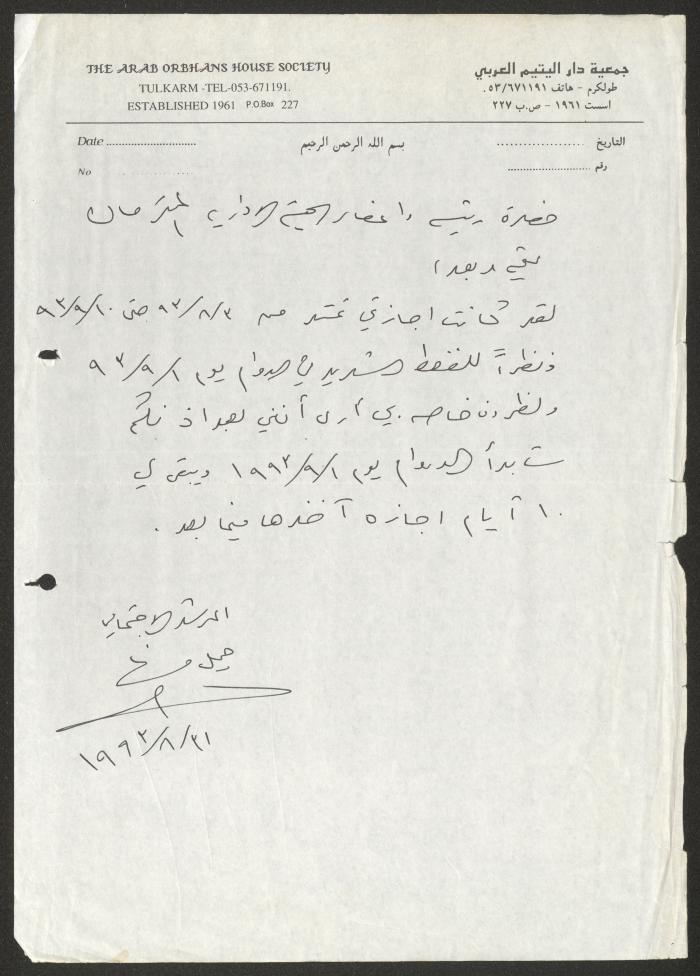 THE ARAB ORBHANS HOUSE SOCIETY
TULKARM -TEL-053-671191.
ESTABLISHED 1961 P.O.Box 227
جمعية دار اليتيم العربي
طولكرم - هاتف ٥٣/٦٧١١٩١.
اسست ١٩٦١ - ص.ب ٢٢٧
Date
بسم الله الرحمن الرحيم
التاريخ
No
رقم
حضرة رئيس واعضاء الهيئة الادارية المحترمين
تحية وبعد،
لقد كانت اجازتي تمتد من ٩٣/٨/٣ حتى ٩٣/٩/١٠
ونظراً للضغط الشديد في الدوام يوم ٩٣/٩/١
ولظروف خاصه بي أرى أنني بعد اذنكم
سأبدأ الدوام يوم ١٩٩٣/٩/١ ويبقى لي
١٠ أيام اجازه آخذها فيما بعد.
المرشد الاجتماعي
١٩٩٣/٨/٣١